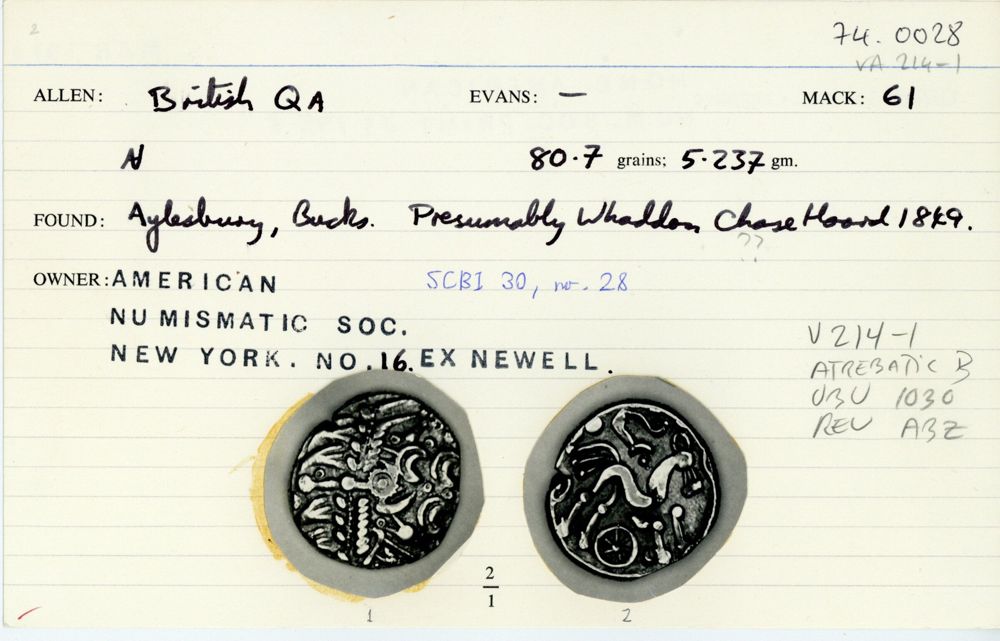 2
74.0028
VA 214-1
ALLEN: British QA EVANS: — MACK: 61
N 80.7 grains; 5.237 gm.
FOUND: Aylesbury, Bucks. Presumably Whaddon Chase Hoard 1849.
??
OWNER: AMERICAN SCBI 30, no. 28
NUMISMATIC SOC.
NEW YORK. NO. 16. EX NEWELL.
V 214-1
ATREBATIC B
OBV 1030
REV ABZ
2
1
1 2